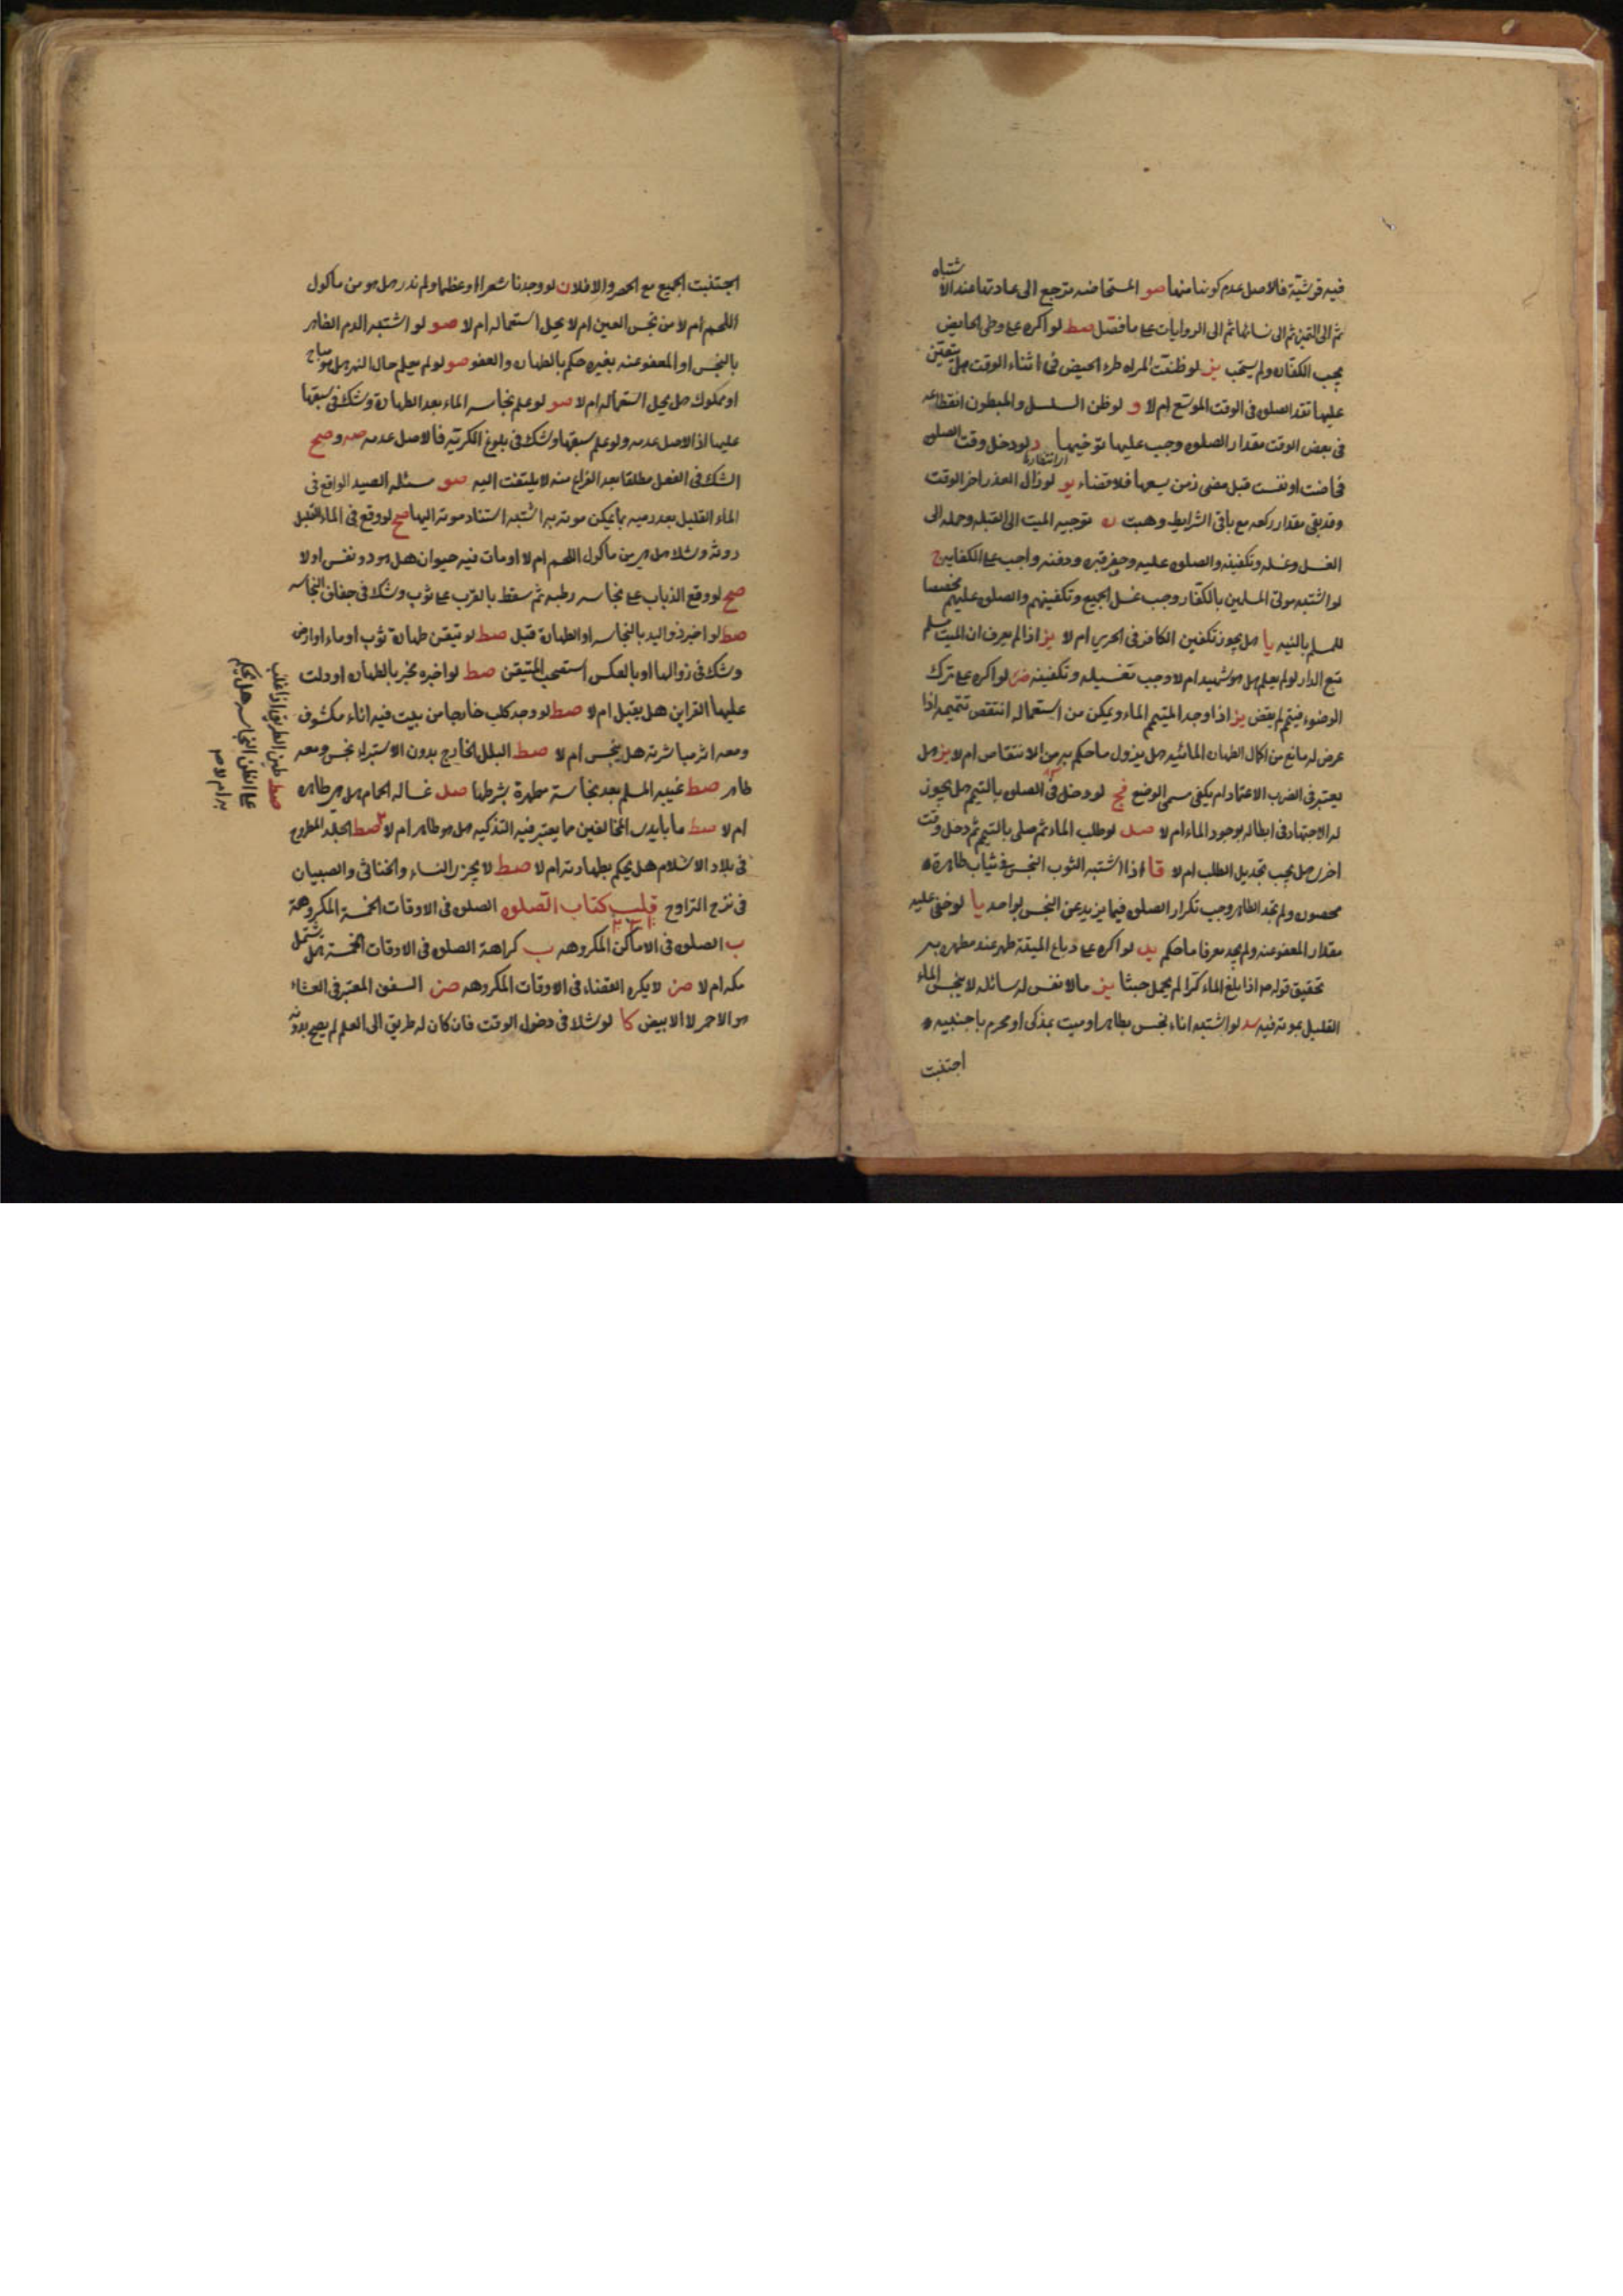 فيه قرشية فالاصل عدم كونها منها صو المستحاضه ترجع الى عادتها عند الاشتباه
ثم الى التميز ثم الى نسائها ثم الى الروايات على ما فصل صط لو اكره على وطى الحايض
يجب الكفاره ولم يستحب يز لو ظنت المراه طرء الحيض فى اثناء الوقت هل يتعين
عليها تقد الصلوه فى الوقت الموسع ام لا و لو ظن السلسل والمبطون انقطاعه
فى بعض الوقت مقدار الصلوه وجب عليهما توخيهما د لو دخل وقت الصلوه
او انتظارها
فحاضت او نفست قبل مضى زمن يسعها فلا قضاء يو لو زال العذر اخر الوقت
وقد بقى مقدار ركعه مع باقى الشرايط وجبت ه توجيه الميت الى القبله وحمله الى
الغسل وغسله وتكفينه والصلوه عليه وحفر قبره ودفنه واجب على الكفايه ح
لو اشتبه موتى المسلمين بالكفار وجب غسل الجميع وتكفينهم والصلوه عليهم مخصصا
للمسلم بالنيه يا هل يجوز تكفين الكافر فى الحرير ام لا يز اذا لم يعرف ان الميت مسلم
تبع الدار لو لم يعلم هل هو شهيد ام لا وجب تغسيله وتكفينه لو اكره على ترك
الوضوء فيتيمم لم يقض يز اذا وجد المتيمم الماء وتمكن من استعماله انتقض تيممه اذا
عرض له مانع من اكمال الطهاره المائيه هل يزول ما حكم به من الانتقاض ام لا يز هل
يعتبر فى الضرب الاعتماد ام يكفى مسمى الوضع فح لو دخل فى الصلوه بالتيمم هل يجوز
له الاجتهاد فى ابطاله بوجود الماء ام لا صل لو طلب الماء ثم صلى بالتيمم ثم دخل وقت
اخرى هل يجب تجديد الطلب ام لا قا اذا اشتبه الثوب النجس فى ثياب طاهرة
محصوره ولم تجد الطاهر وجب تكرار الصلوه فيما يزيد عن النجس بواحد يا لو خفى عليه
مقدار المعفو عنه ولم يجد معرفا ما حكمه يد لو اكره على دباغ الميتة طهر عند مطهره به
تحقيق قوله ص اذا بلغ الماء كرا لم يحمل خبثا يز ما لا نفس له سائله لا ينجس الماء
القليل بموته فيه سد لو اشتبه اناء نجس بطاهر او ميت بمذكى او محرم باجنبيه
اجتنبت
اجتنبت الجميع مع الحصر والا فلا ن لو وجدنا شعرا او عظما ولم ندر هل هو من ماكول
اللحم ام لا من نجس العين ام لا يحل استعماله ام لا صو لو اشتبه الدم الطاهر
بالنجس او المعفو عنه بغيره حكم بالطهاره والعفو صو لو لم يعلم حال النهر هل هو مباح
او مملوك هل يحل استعماله ام لا صو لو علم نجاسه الماء بعد الطهارة وشك فى سبقها
عليها اذ الاصل عدمه ولو علم سبقها وشك فى بلوغ الكريه فالاصل عدمه صه و صح
الشك فى الفعل مطلقا بعد الفراغ منه لا يلتفت اليه صو مسئله الصيد الواقع فى
الماء القليل بعد رميه بما يمكن موته به اشتبه استناد موته اليها صح لو وقع فى الماء القليل
روثه وشك هل هى من ماكول اللحم ام لا او مات فيه حيوان هل هو ذو نفس او لا
صح لو وقع الذباب على نجاسه رطبه ثم سقط بالقرب على ثوب وشك فى جفاف النجاسه
صط لو اخبر ذو اليد بالنجاسه او الطهارة قبل صط لو تيقن طهارة ثوب او ماء او ارض
وشك فى زوالها او بالعكس استصحب المتيقن صط لو اخبره مخبر بالطهاره او دلت
عليها القراين هل يقبل ام لا صط لو وجد كلب خارجا من بيت فيه اناء مكشوف
ومعه اثر مباشرته هل ينجس ام لا صط البلل الخارج بدون الاستبراء نجس ومعه
طاهر صط غيبه المسلم بعد نجاسة مطهرة بشرطها صل غساله الحمام هل هى طاهره
ام لا صط ما بايدى المخالفين مما يعتبر فيه التذكيه هل هو طاهر ام لا صط الجلد المطروح
فى بلاد الاسلام هل يحكم بطهارته ام لا صط لا يجزى النساء والخناثى والصبيان
فى نزح التراوح كتاب الصلوه الصلوه فى الاوقات الخمسة المكروهة
ب الصلوه فى الاماكن المكروهه ب كراهة الصلوه فى الاوقات الخمسة هل يشتمل
مكه ام لا صن لا يكره القضاء فى الاوقات المكروهه صن الشفق المعتبر فى العشاء
هو الاحمر لا الابيض كا لو شك فى دخول الوقت فان كان له طريق الى العلم لم يصح بدونه
صط طين الطريق اذا غلب
على الظن النجاسه هل يحكم
به ام لا